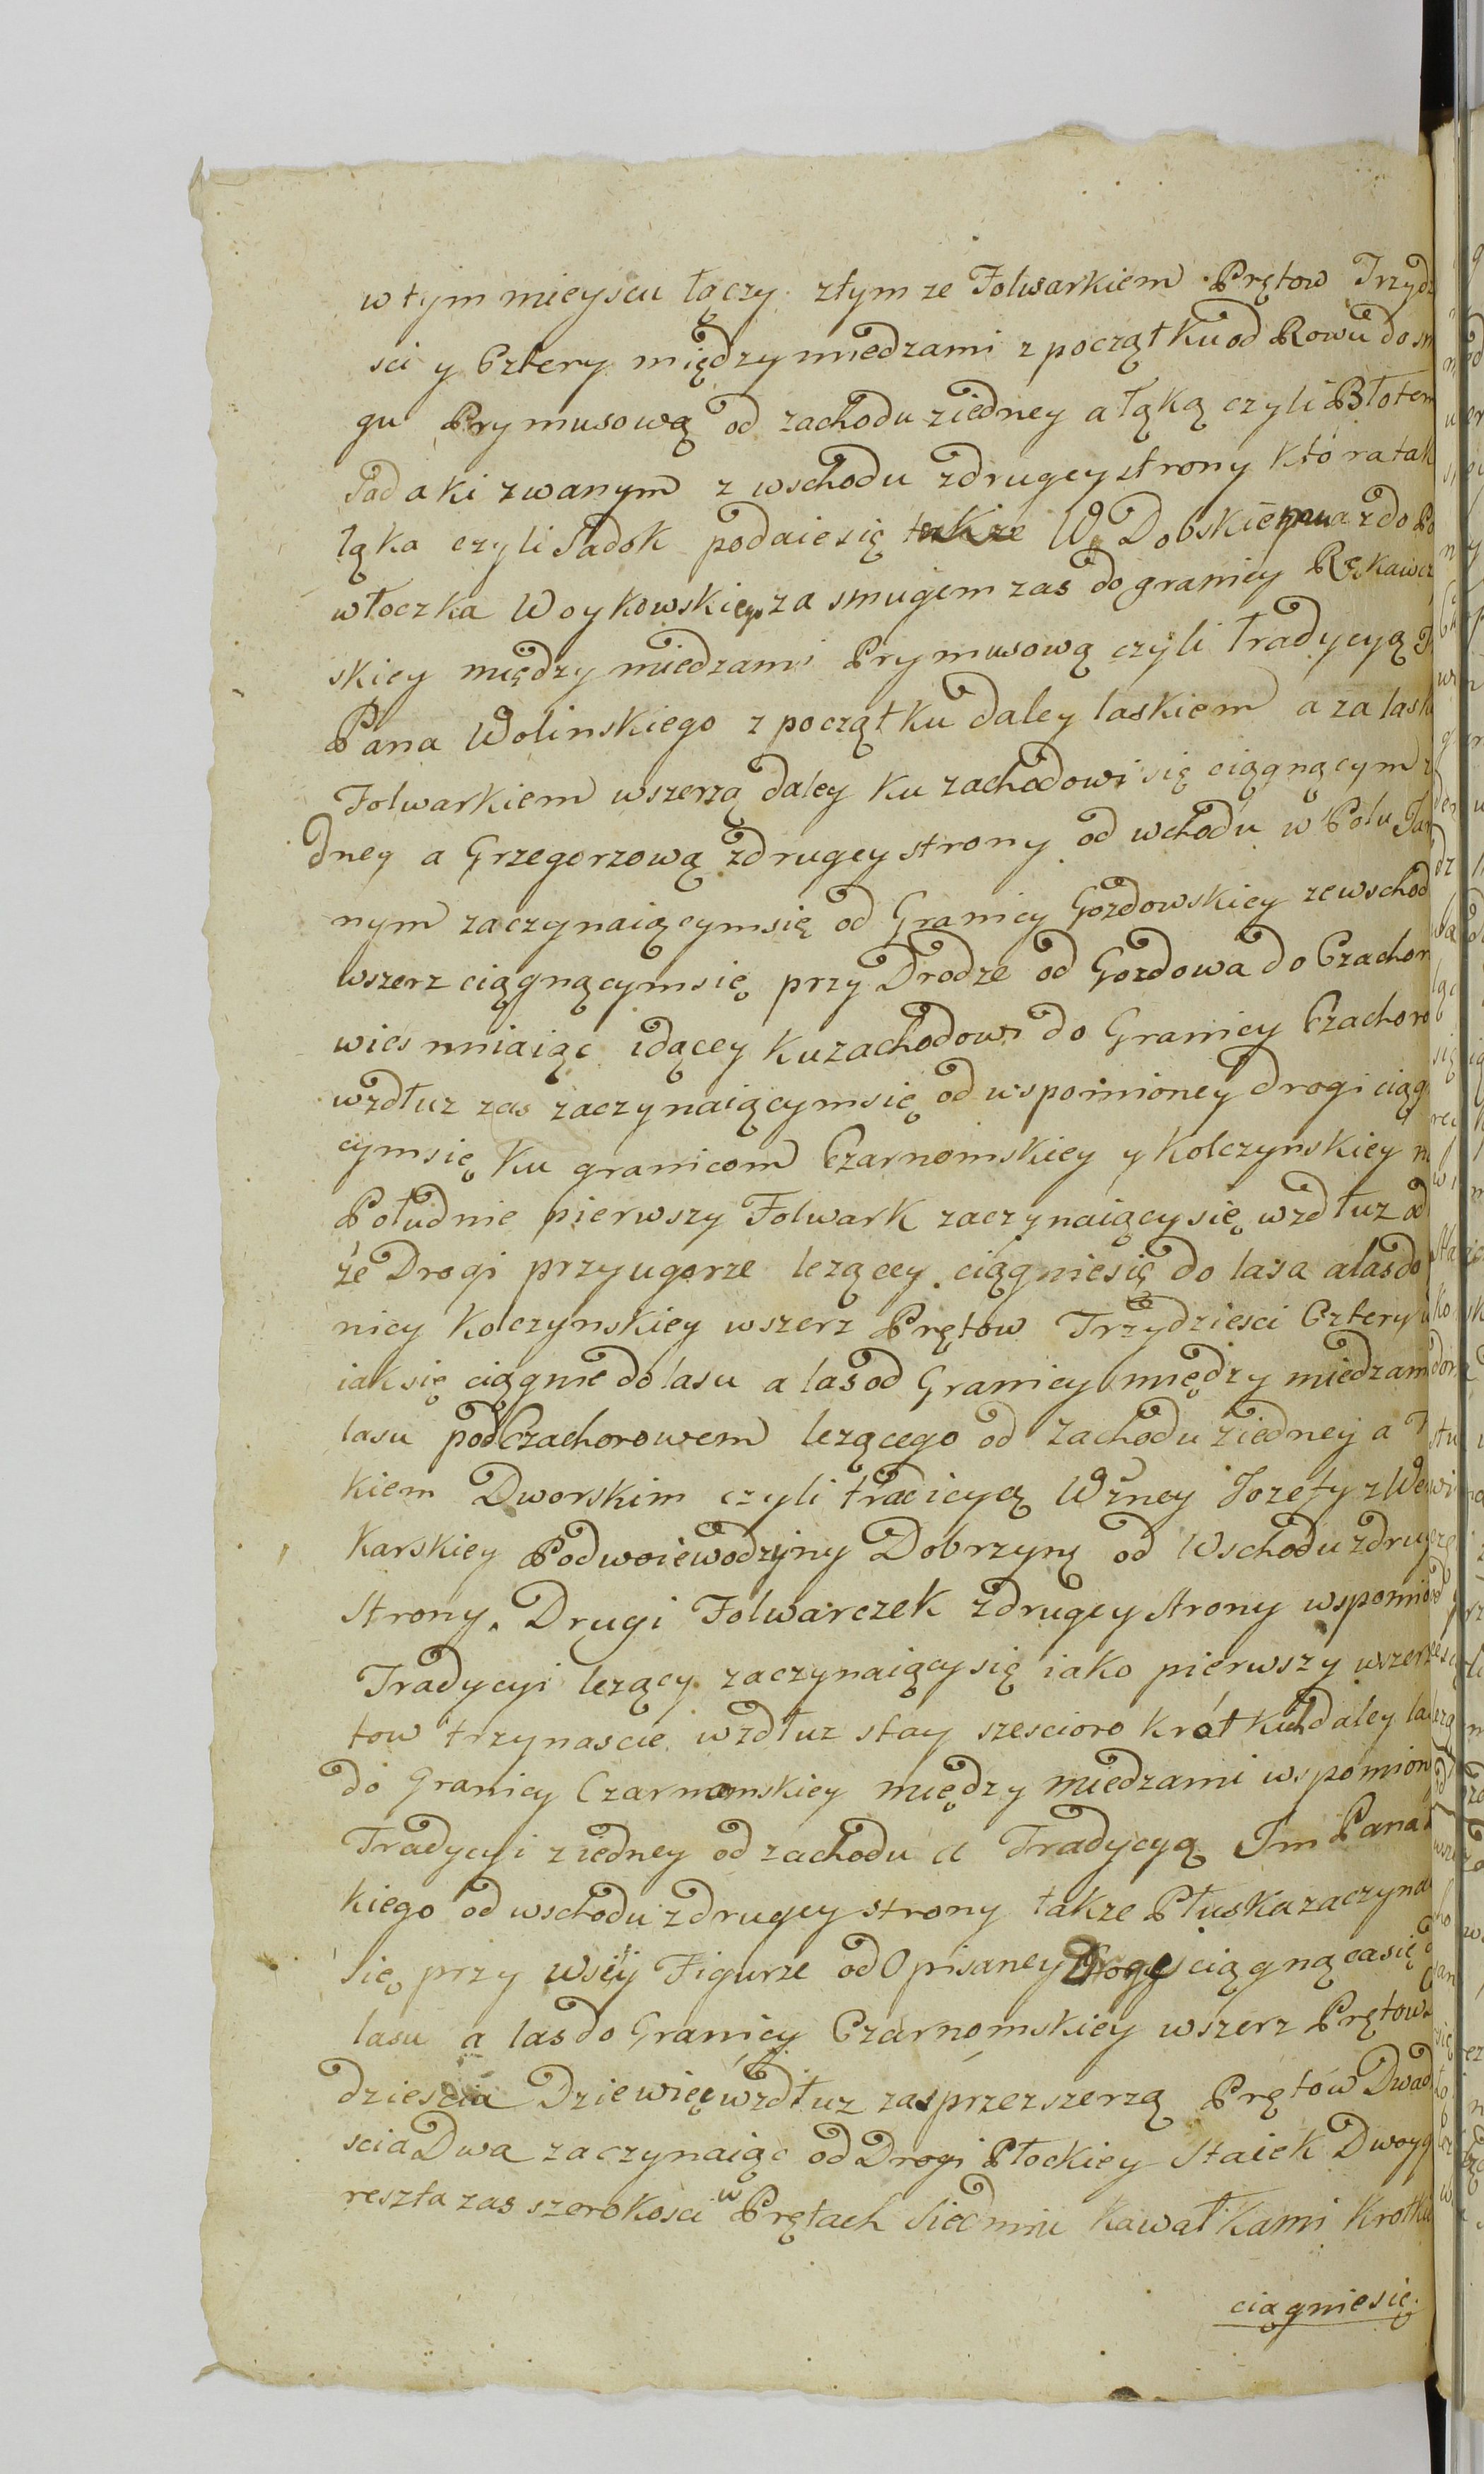 w tym mieyscu łączy ztym ze Folwarkiem Prętow Trzydz
sci y Cztery między miedzami z początku od Rowu do sm
gu Prymusową od zachodu ziedney a łąką czyli Błotem
Sadaki zwanym z wschodu zdrugey strony która tak
łąka czyli Sadok podaie się także W. Dobskiemu azdo Po
włoczka Woykowskiego za smugem zas do granicy Rękawcz
skiey między miedzami Prymusową czyli tradycyą
Pana Wolinskiego z początku daley laskiem a za lask
Folwarkiem wszerzą daley ku zachodowi się ciągnącym z
dney a Grzegorzową zdrugey strony od wchodu w Polu Jar
nym zaczynaiącymsię od Granicy Gozdowskiey zewschod
wszerz ciągnącymsię przy Drodze od Gozdowa do Czachor
wies mniaiąc idącey ku zachodowi do Granicy Czachoro
wzdłuz zas zaczynaiącymsię od wspomnioney drogi ciąg
cymsię ku granicom Czarnomskiey y Kolczynskiey n
Południe pierwszy Folwark zaczynaiącysię wzdłuz od
że Drogi przyugorze lezącey ciągniesię do lasa a las do
nicy Kolczynskiey wszerz Prętow Trzydziesci Cztery
iak się ciągnie do lasu a las od Granicy między miedzam
lasu pod Czachorowem lezącego od zachodu ziedney a
kiem Dworskim czyli tradicyą Wżney Jozefy z We
karskiey Podwoiewodzyny Dobrzyns od Wschodu zdrug
Strony. Drugi Folwarczek zdrugey strony wspomnio
Tradycyi lezący zaczynaiącysię iako pierwszy wszerz
tow trzynascie wzdłuz stay szescioro krótkich daley la
do Granicy Czarnomskiey między miedzami wspomion
Tradycyi ziedney od zachodu a Tradycyą Jm Pana
kiego od wschodu zdrugey strony takze Płuska zaczyna
się przy wsiy Figurze od Opisaney Drogi ciągnącasię
lasu a las do Granicy Czarnomskiey wszerz Prętow
dziescia Dziewięć wzdłuz zas przez szerzą Prętów Dwad
scia Dwa zaczynaiąc od Drogi Płockiey Staiek Dwoyg
reszta zas szerokosci w Prętach siedmiu kawałkami krotk
ciągniesię.